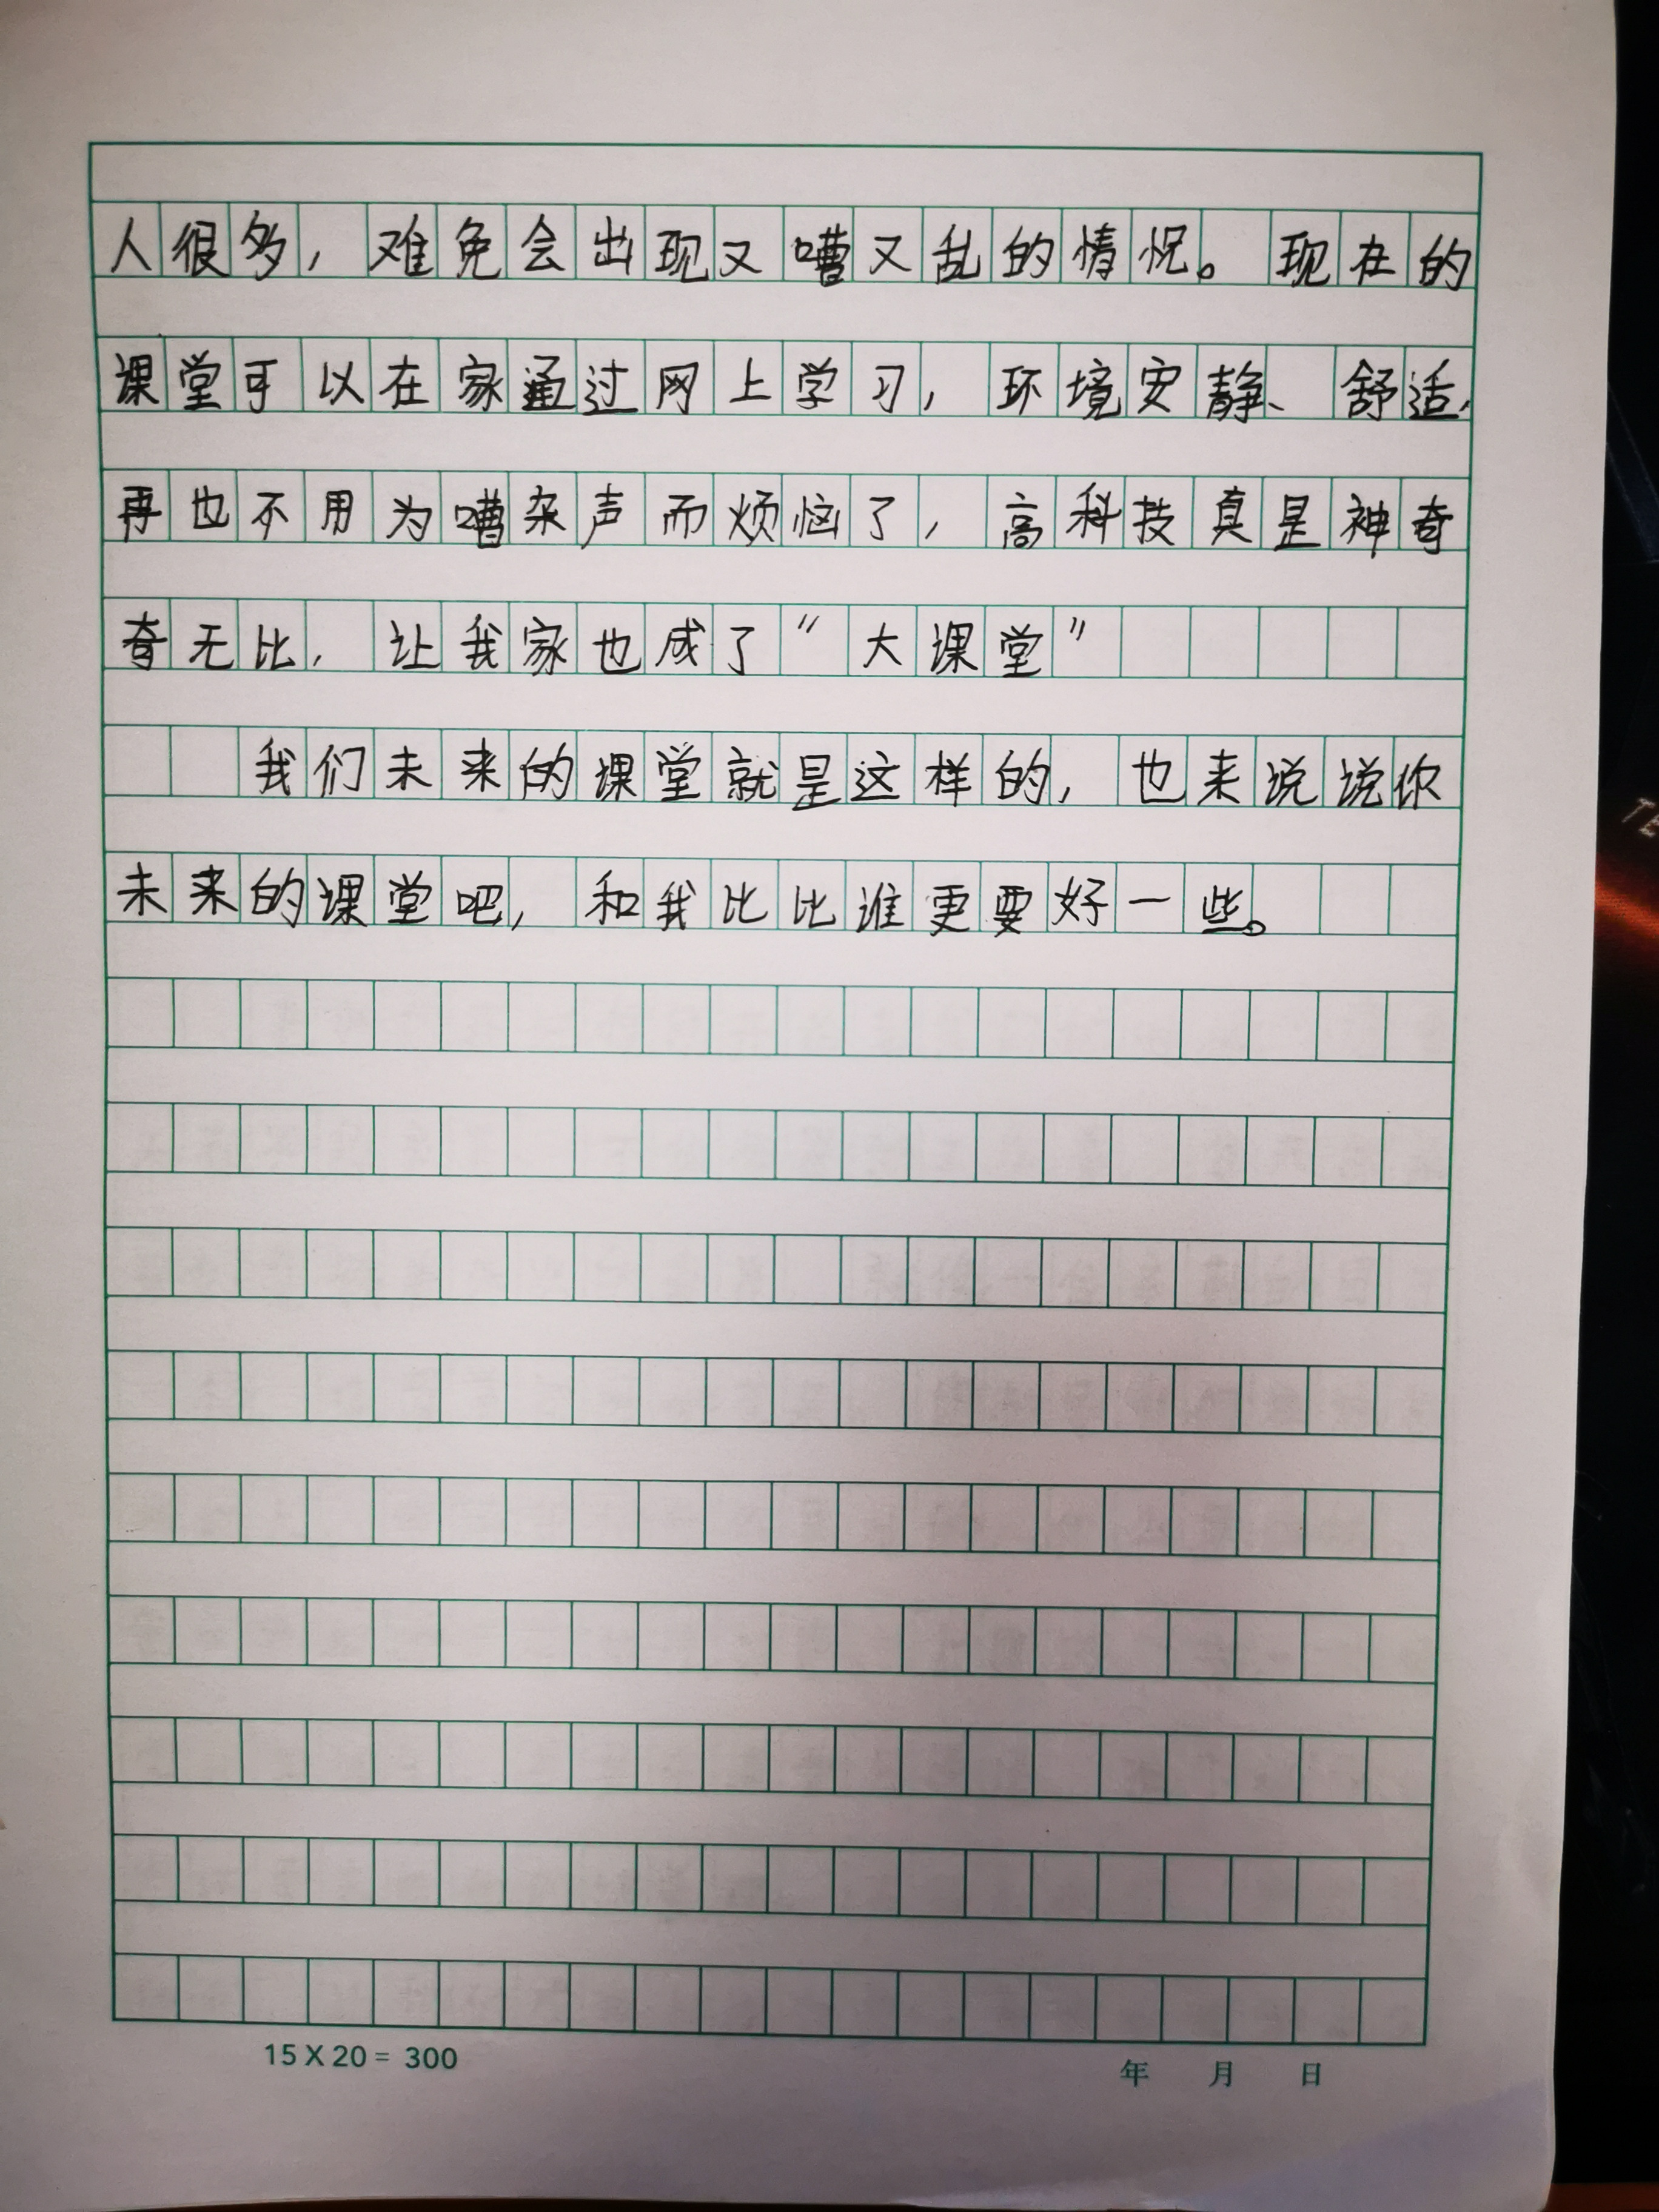 人很多，难免会出现又嘈又乱的情况。现在的
课堂可以在家通过网上学习，环境安静、舒适，
再也不用为嘈杂声而烦恼了，高科技真是神奇
奇无比，让我家也成了“大课堂”
我们未来的课堂就是这样的，也来说说你
未来的课堂吧，和我比比谁更要好一些。
15X20=300
年 月 日